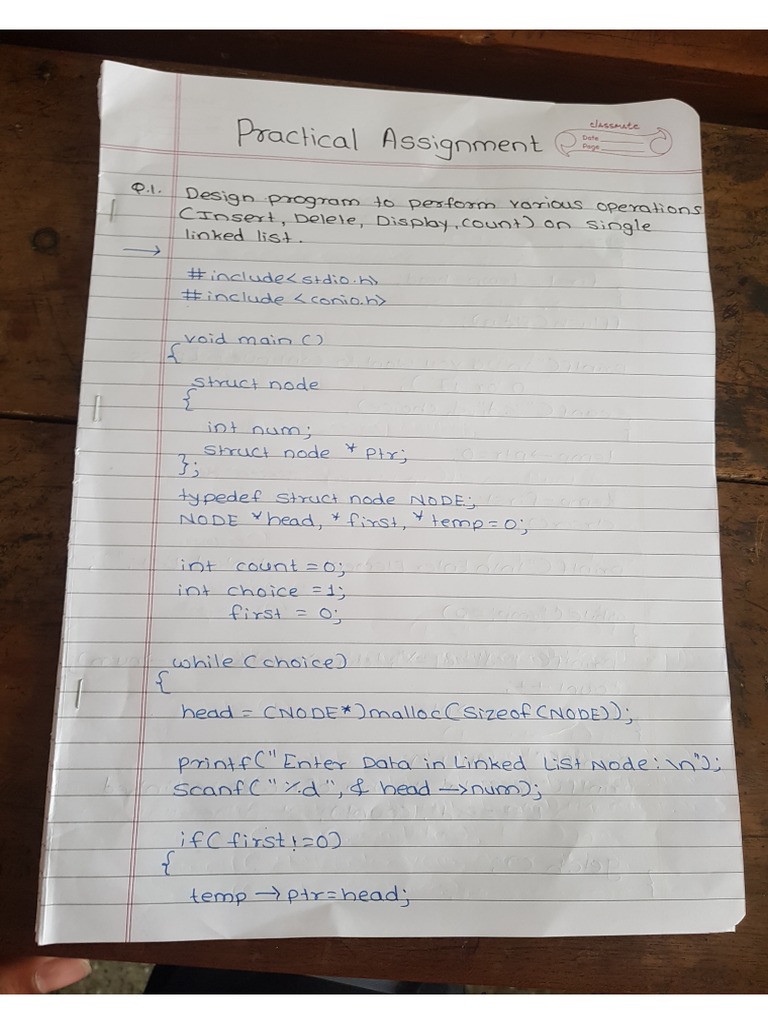 classmate
Date
Page
Practical Assignment
Q.1. Design program to perform various operations
(Insert, Delele, Display, count) on single
linked list.
→
#include<stdio.h>
#include <conio.h>
void main ()
{
struct node
{
int num;
struct node * ptr;
};
typedef struct node NODE;
NODE *head, * first, * temp=0;
int count =0;
int choice =1;
first = 0;
while (choice)
{
head = (NODE*)malloc(sizeof(NODE));
printf("Enter Data in Linked List Node:\n");
scanf("%d", & head →num);
if( first!=0)
{
temp → ptr=head;